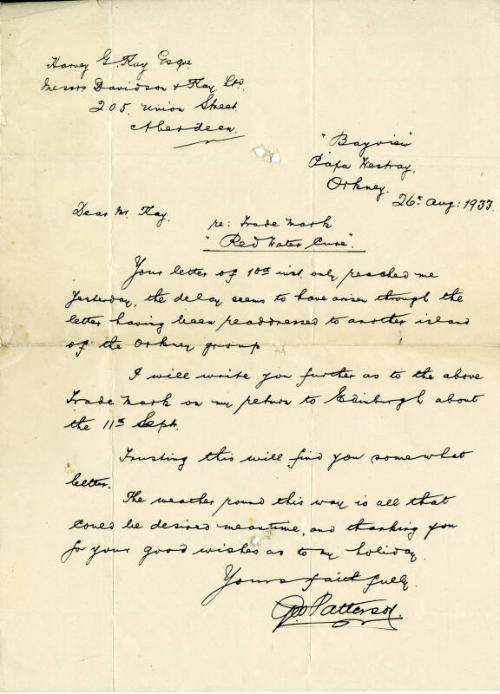 Harvey G. Kay Esqre
Messrs Davidson & Kay Ltd.
205, Union Street
Aberdeen.
"Bayview"
Papa Westray,
Orkney.
26th Aug: 1933.
Dear Mr. Kay.
re: Trade Mark
"Red Water Cure".
Your letter of 10th inst. only reached me
yesterday, the delay seems to have arisen through the
letter having been readdressed to another island
of the Orkney group.
I will write you further as to the above
Trade Mark on my return to Edinburgh about
the 11th Sept.
Trusting this will find you somewhat
better.
The weather round this way is all that
could be desired meantime, and thanking you
for your good wishes as to my holiday.
Yours faithfully.
Geo Patterson.